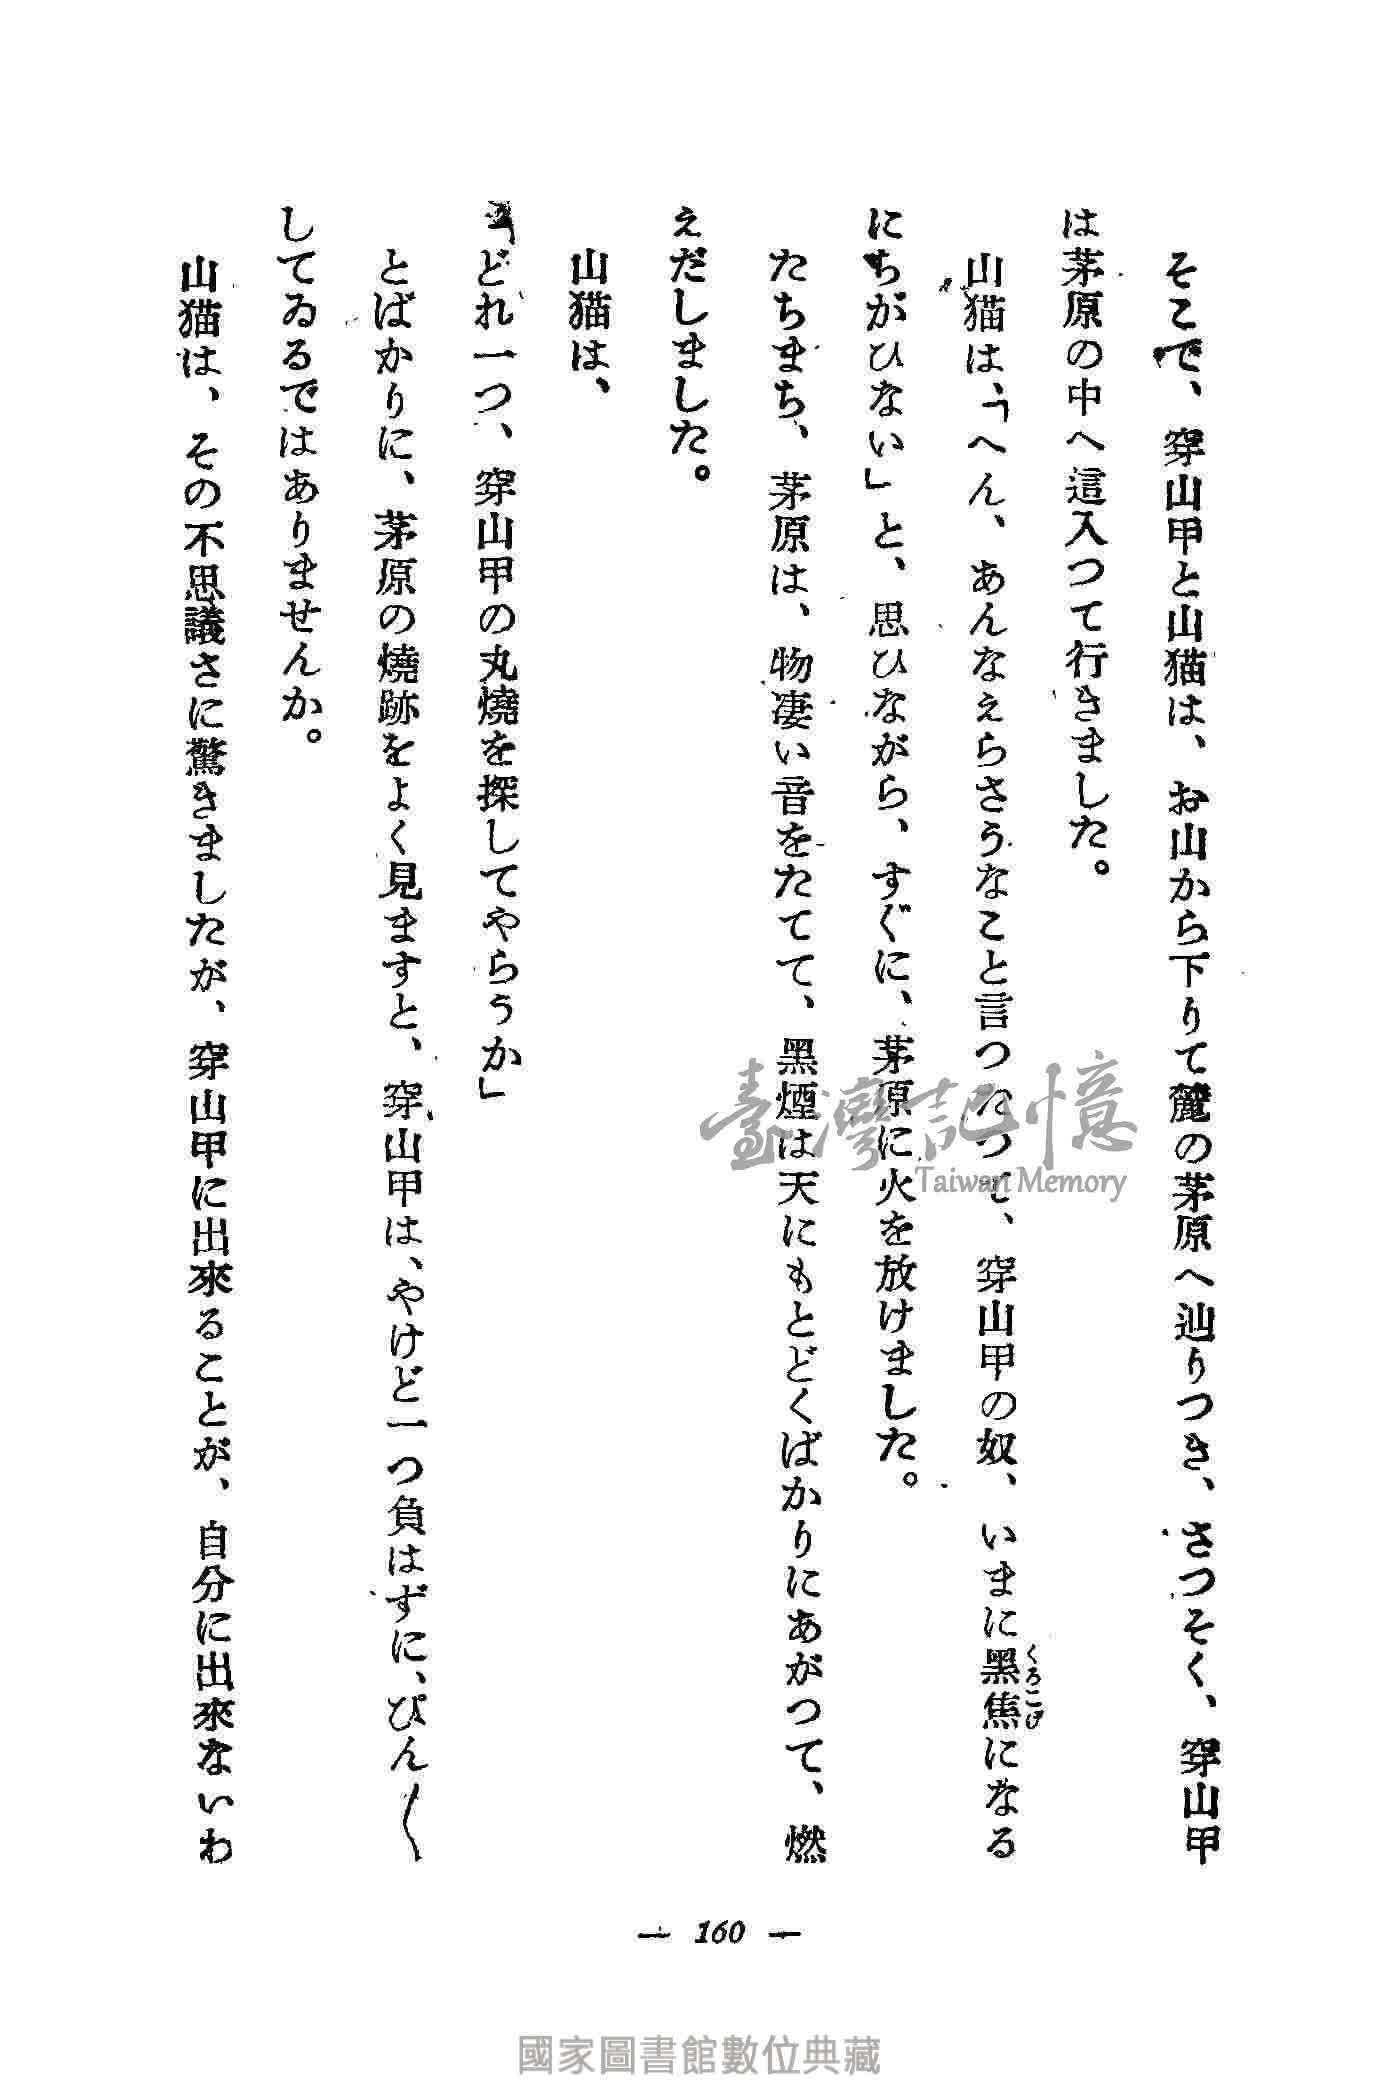 そこで、穿山甲と山猫は、お山から下りて麓の茅原へ辿りつき、さつそく、穿山甲
は茅原の中へ這入つて行きました。
山猫は、「へん、あんなえらさうなこと言つたつて、穿山甲の奴、いまに黑焦になる
くろこげ
にちがひない」と、思ひながら、すぐに、茅原に火を放けました。
たちまち、茅原は、物凄い音をたてて、黑煙は天にもとどくばかりにあがつて、燃
えだしました。
山猫は、
「どれ一つ、穿山甲の丸燒を探してやらうか」
とばかりに、茅原の燒跡をよく見ますと、穿山甲は、やけど一つ負はずに、ぴん〱
してゐるではありませんか。
山猫は、その不思議さに驚きましたが、穿山甲に出來ることが、自分に出來ないわ
— 160 —
臺灣記憶
Taiwan Memory
國家圖書館數位典藏